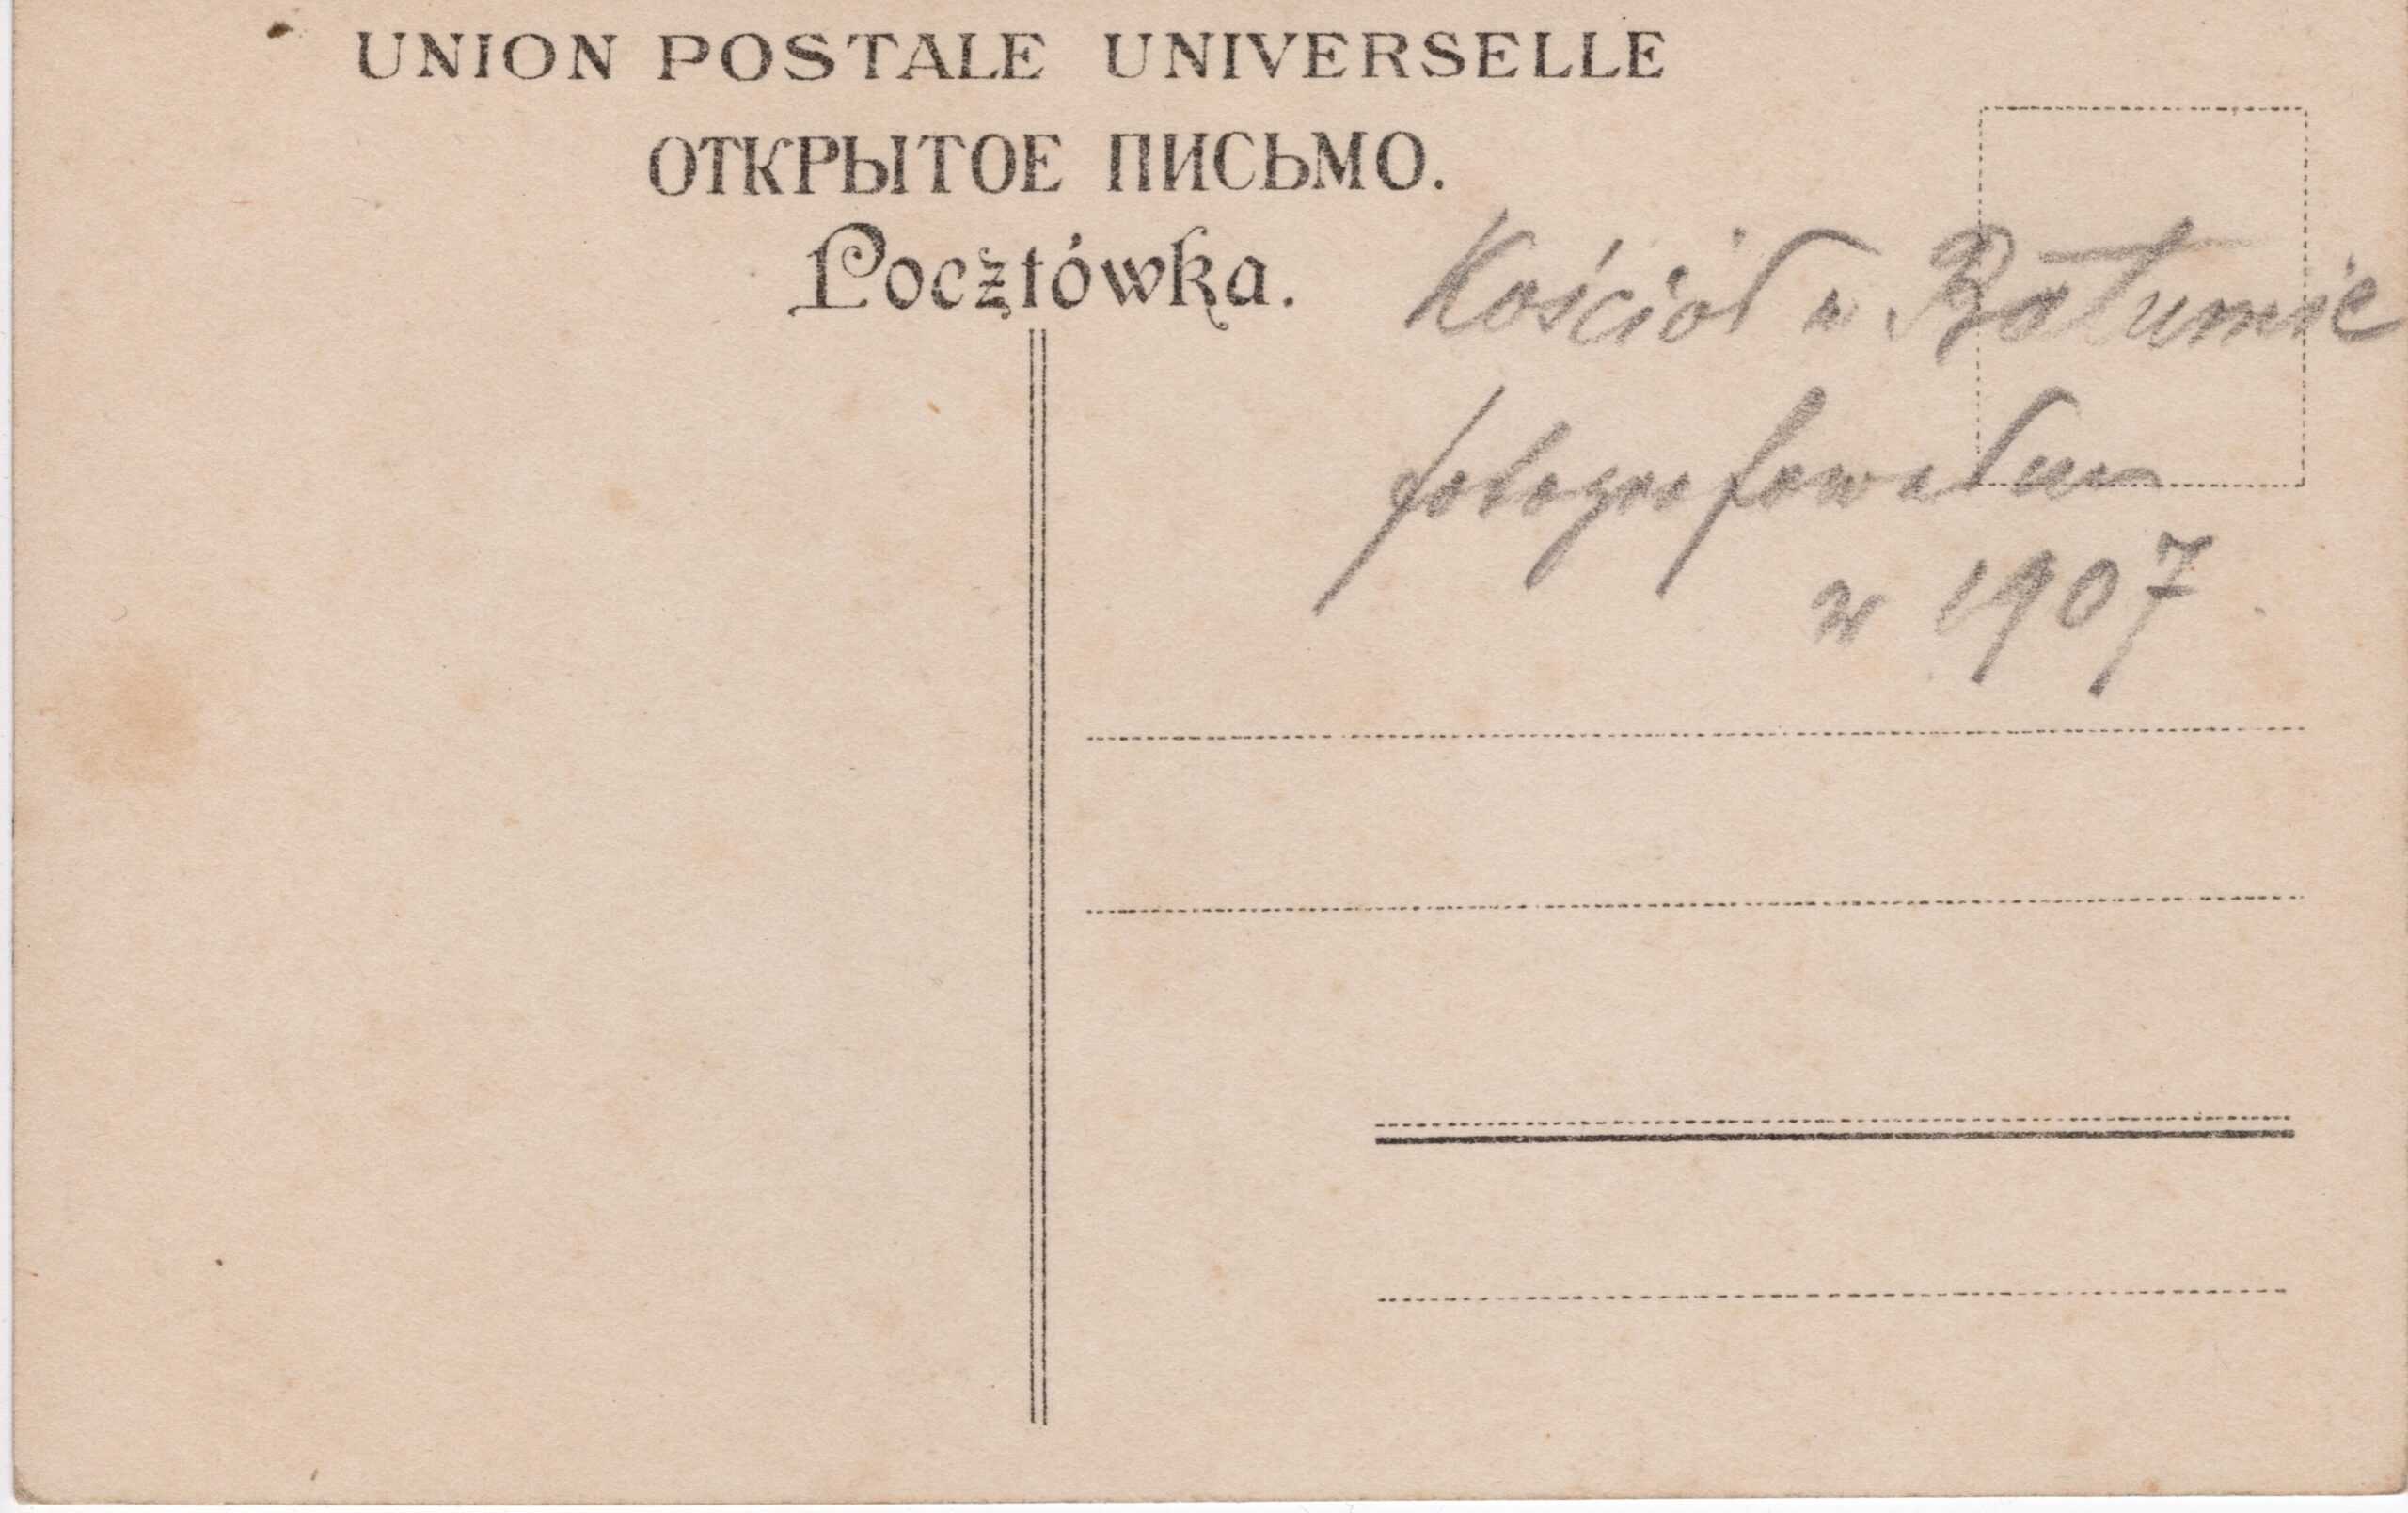 UNION POSTALE UNIVERSELLE
ОТКРЫТОЕ ПИСЬМО.
Pocztówka.
Kościół w Batumie
fotografowałem
w 1907